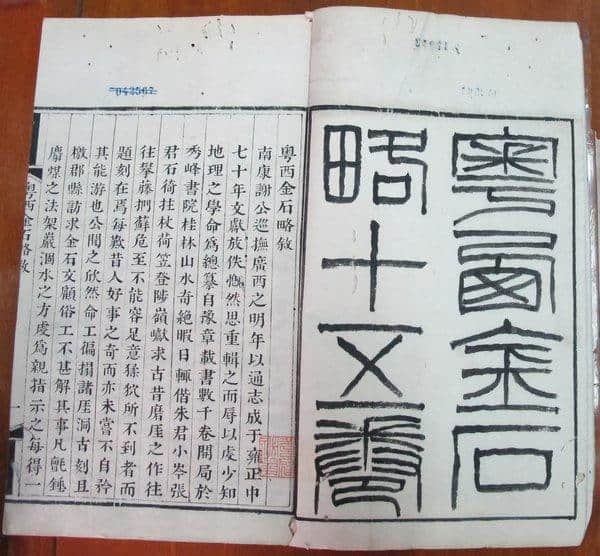 粵西金石
略十五卷
粵西金石略敘
南康謝公巡撫廣西之明年以通志成于雍正中
七十年文獻放佚慨然思重輯之而辱以虔少知
地理之學命爲總纂自豫章載書數千卷開局於
秀峰書院桂林山水奇絕暇日輒偕朱君小岑張
君石倚拄杖荷笠登陟嶺巘求古昔磨厓之作往
往攀藤捫蘚危至不能容足意猱狖所不到者而
題刻在焉每歎昔人好事之奇而亦未嘗不自矜
其能游也公聞之欣然命工徧搨諸厓洞古刻且
檄郡縣訪求金石文顧俗工不甚解其事凡氈錘
麝煤之法架巖涸水之方虔爲親指示之每得一
粵西金石略敘
一